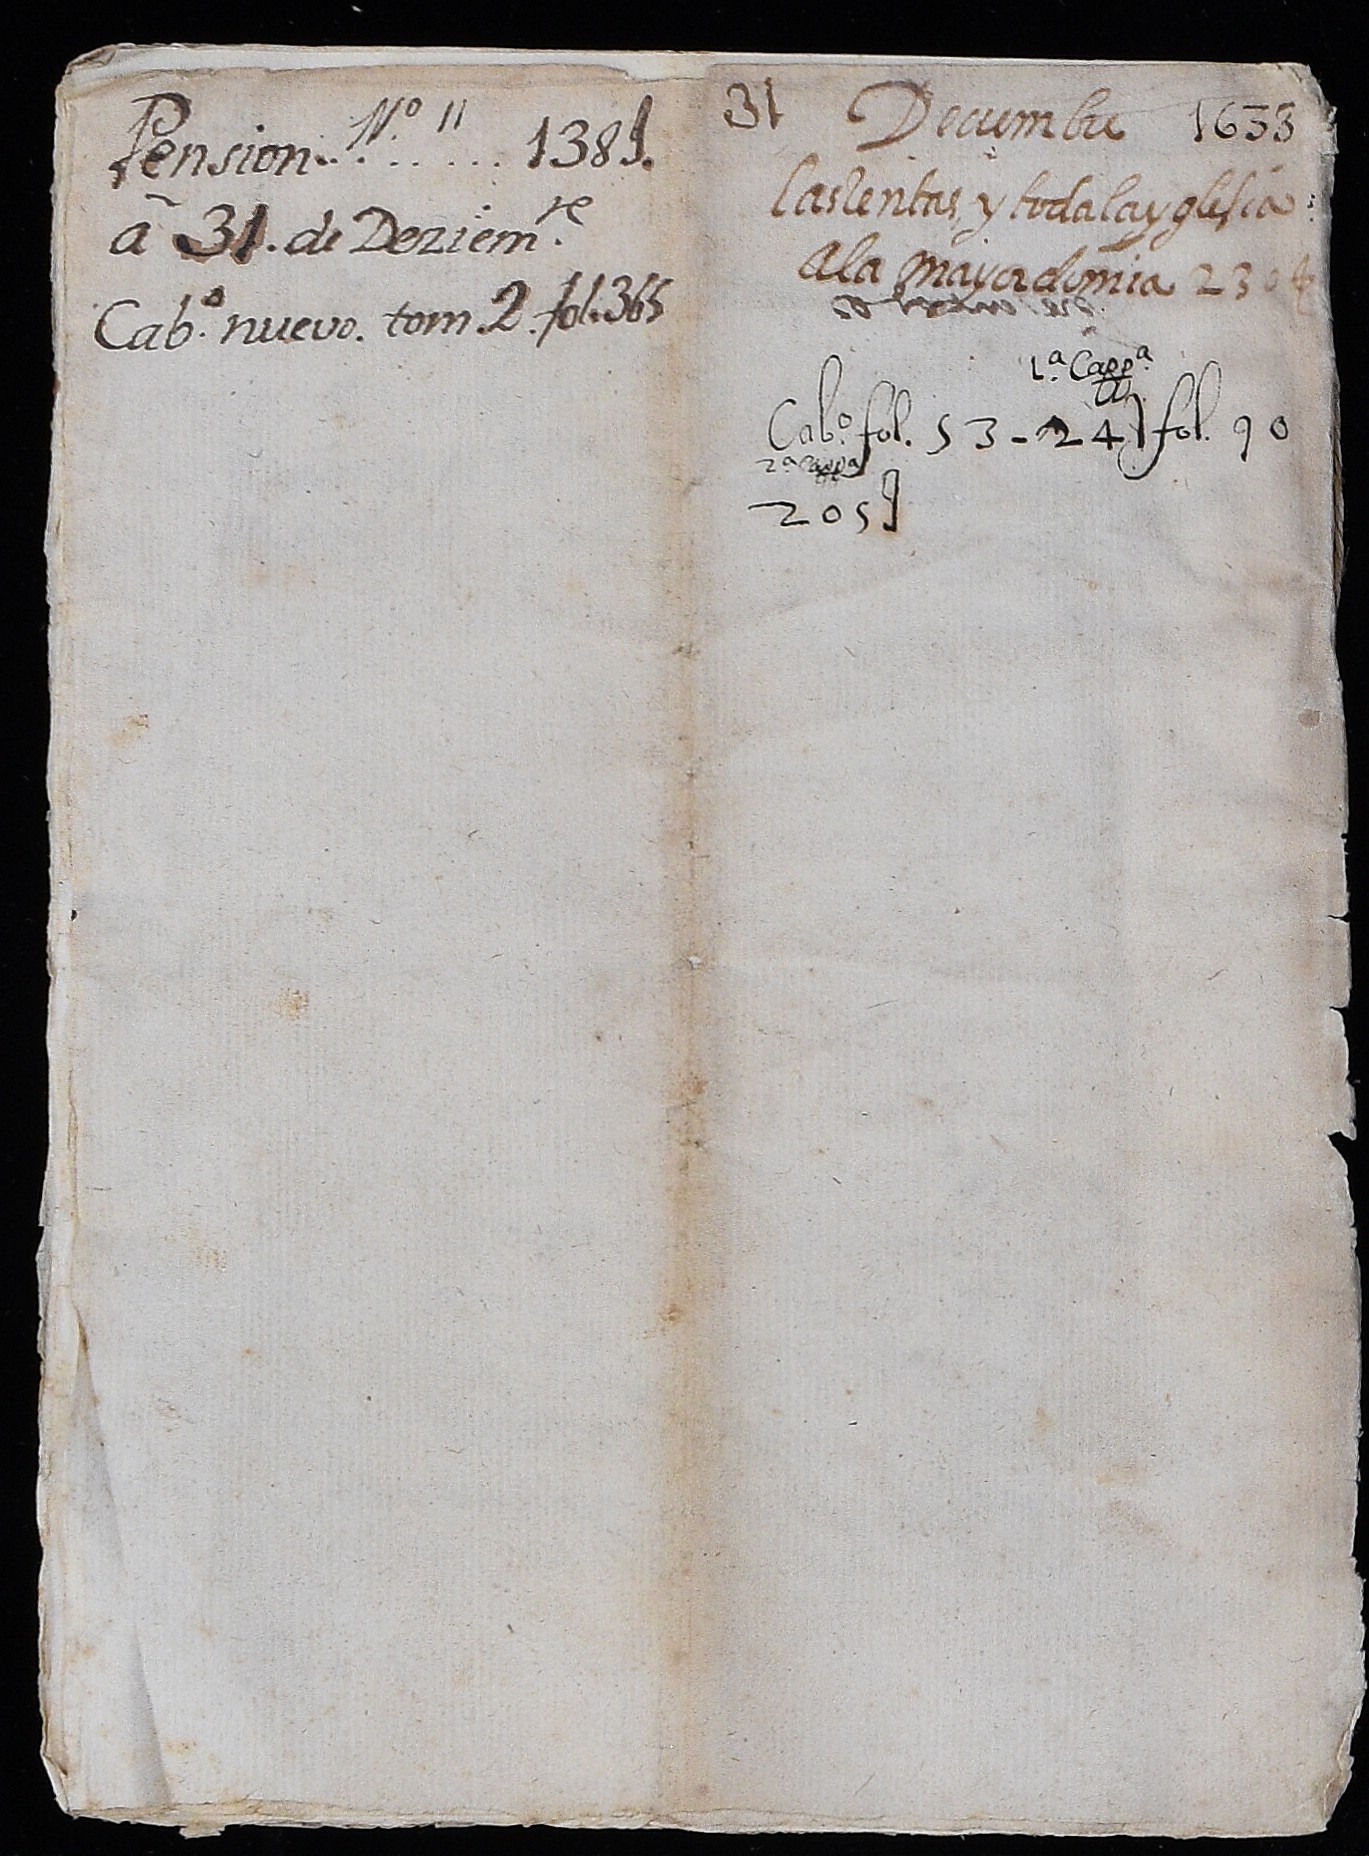 N.º 11
Pension......... 138 l.
â 31. de Deziem.re
Cab.º nuevo. tom. 2. fol. 365
31 Deciembre 1633
las rentas, y toda la yglesia
a la mayordomia 2304
1.ª Capp.ª
Cab.º fol. 53 - 24] fol. 90
2.ª Capp.ª
205]